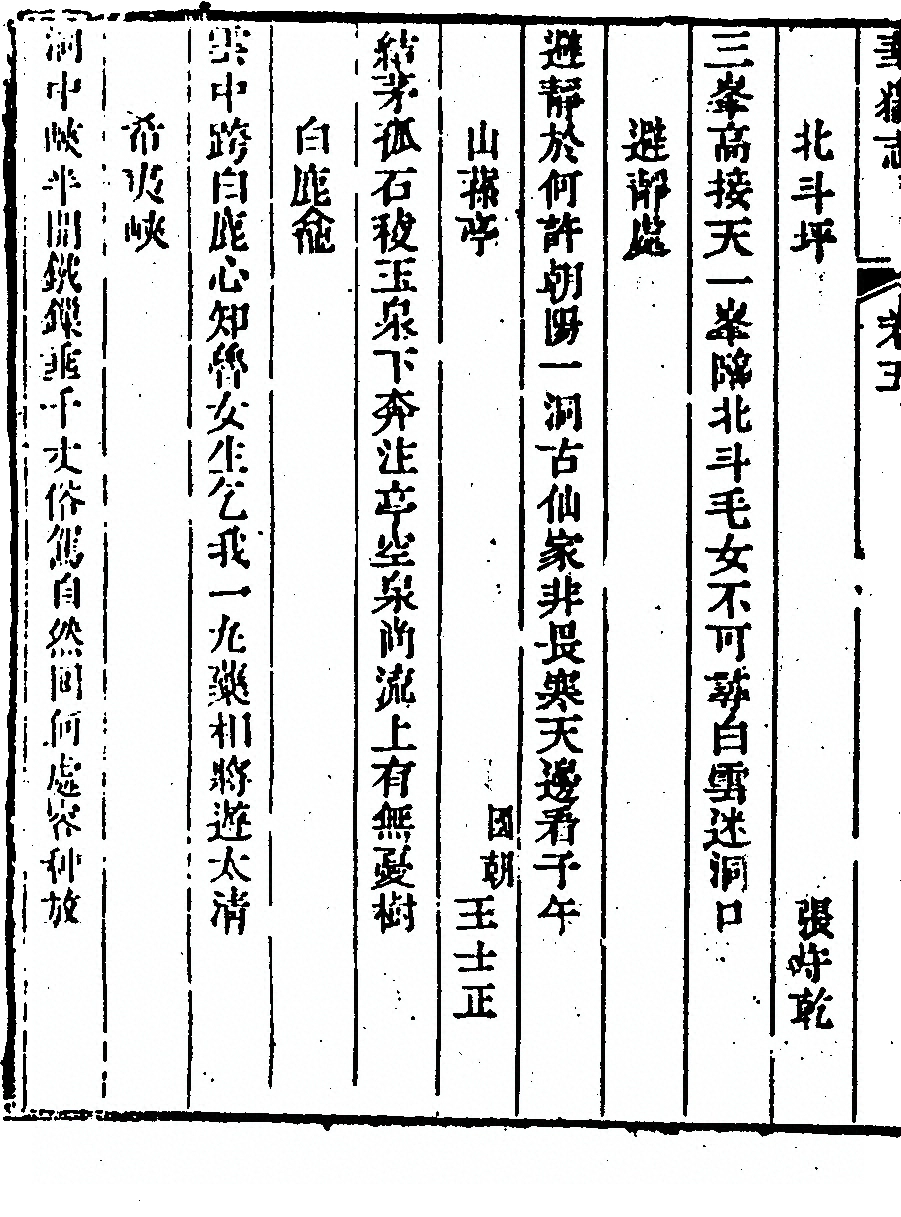 華嶽志 卷五
北斗坪 張時乾
三峯高接天一峯臨北斗毛女不可尋白雲迷洞口
避靜處
避靜於何許朝陽一洞古仙家非畏寒天邊看子午
山蓀亭 國朝王士正
結茅孤石稜玉泉下奔注亭空泉尚流上有無憂樹
白鹿龕
雲中跨白鹿心知魯女生乞我一丸藥相將遊太清
希夷峽
洞中峽半開鐵鏁垂千丈俗駕自然回何處容种放